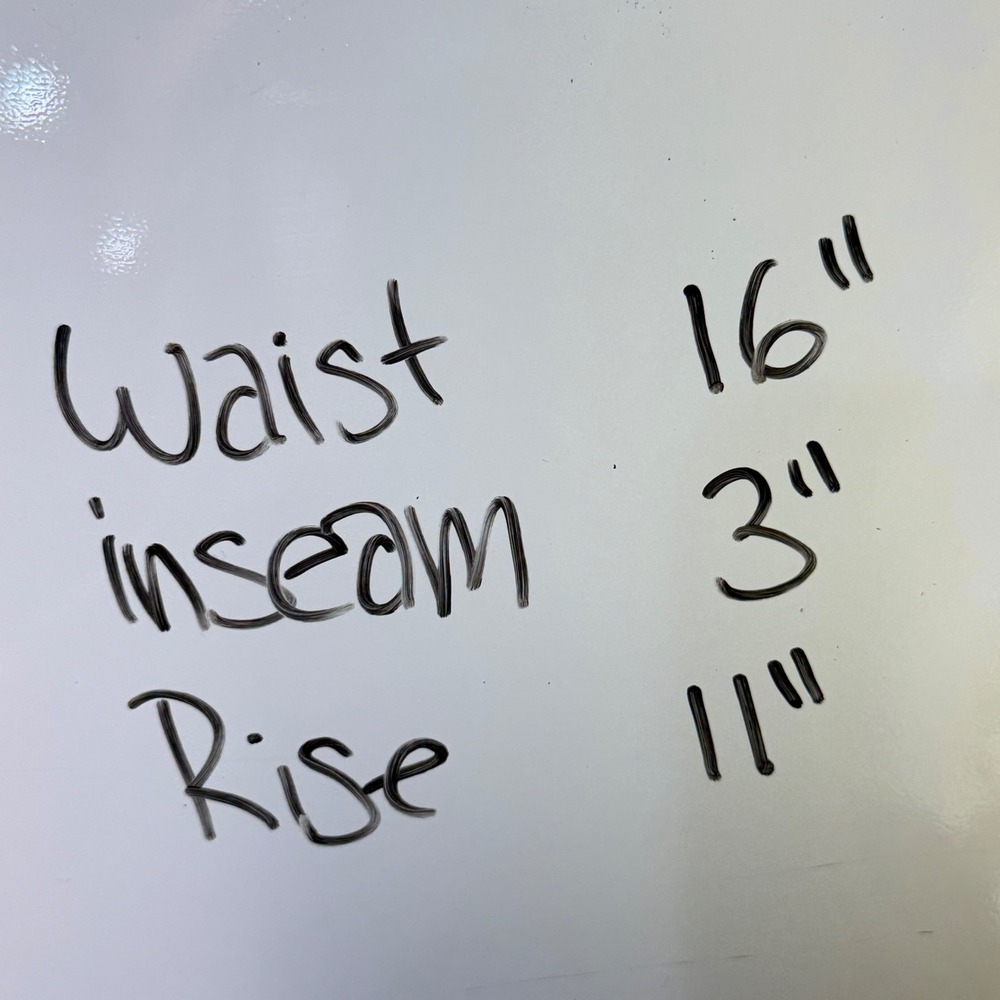 Waist 16"
inseam 3"
Rise 11"